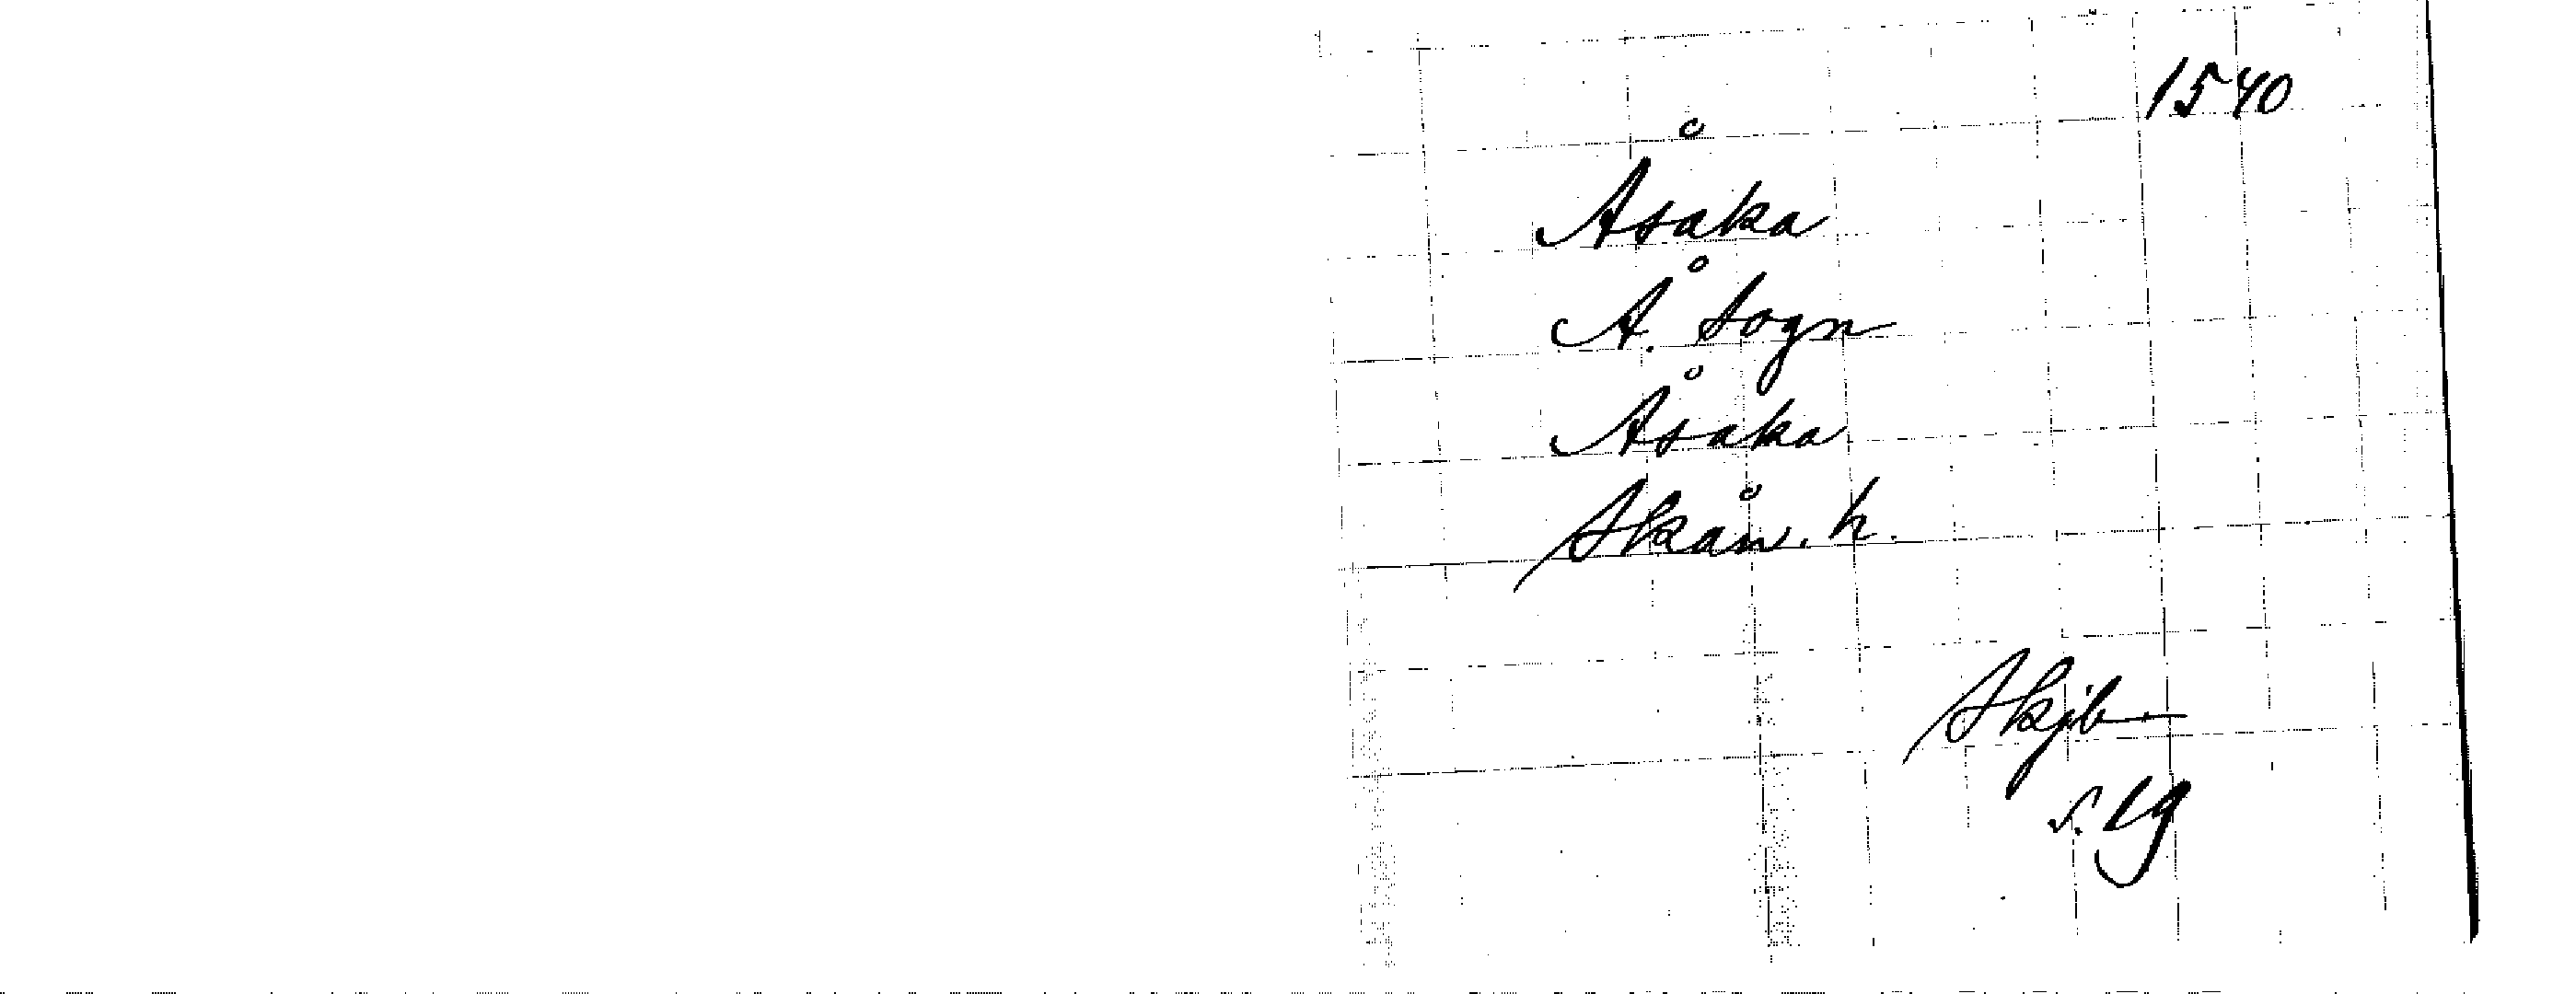 1540
Åsaka
Å. sogn
Åsaka
Skån. h.
Skjb
s. 19